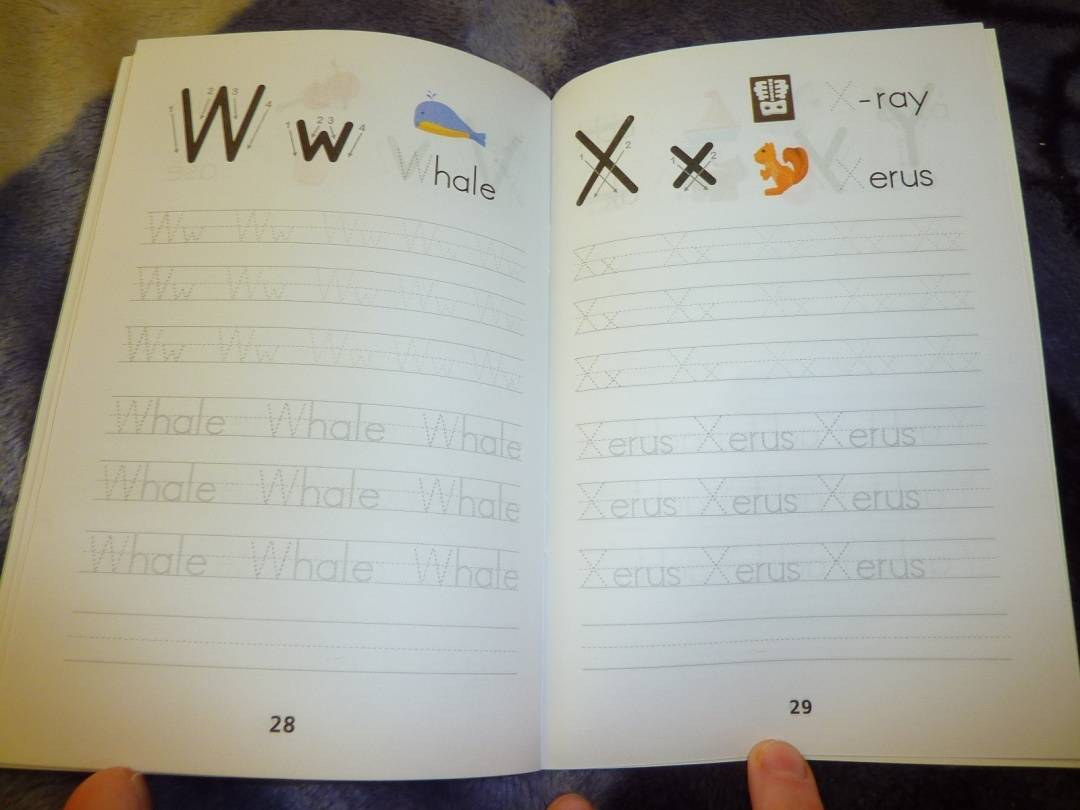 1 2 3 4 W 1 2 3 4 w
Whale
Ww Ww Ww Ww Ww
Ww Ww Ww Ww Ww
Ww Ww Ww Ww Ww
Whale Whale Whale
Whale Whale Whale
Whale Whale Whale
28
X-ray
1 2 X 1 2 x
Xerus
Xx Xx Xx Xx Xx
Xx Xx Xx Xx Xx
Xx Xx Xx Xx Xx
Xerus Xerus Xerus
Xerus Xerus Xerus
Xerus Xerus Xerus
29